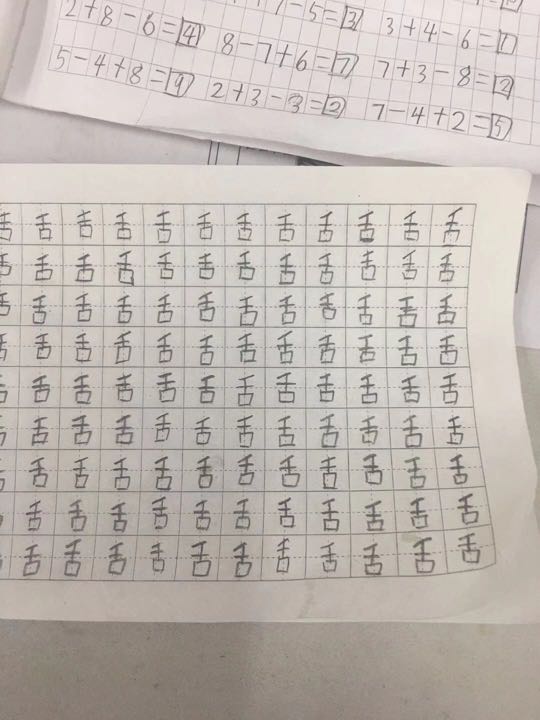 7-5=3 3+4-6=1
2+8-6=4 8-7+6=7 7+3-8=2
5-4+8=9 2+3-3=2 7-4+2=5
舌舌舌舌舌舌舌舌舌舌舌
舌舌舌舌舌舌舌舌舌舌舌
舌舌舌舌舌舌舌舌舌舌舌
舌舌舌舌舌舌舌舌舌舌舌
舌舌舌舌舌舌舌舌舌舌舌
舌舌舌舌舌舌舌舌舌舌舌
舌舌舌舌舌舌舌舌舌舌舌
舌舌舌舌舌舌舌舌舌舌舌
舌舌舌舌舌舌舌舌舌舌舌